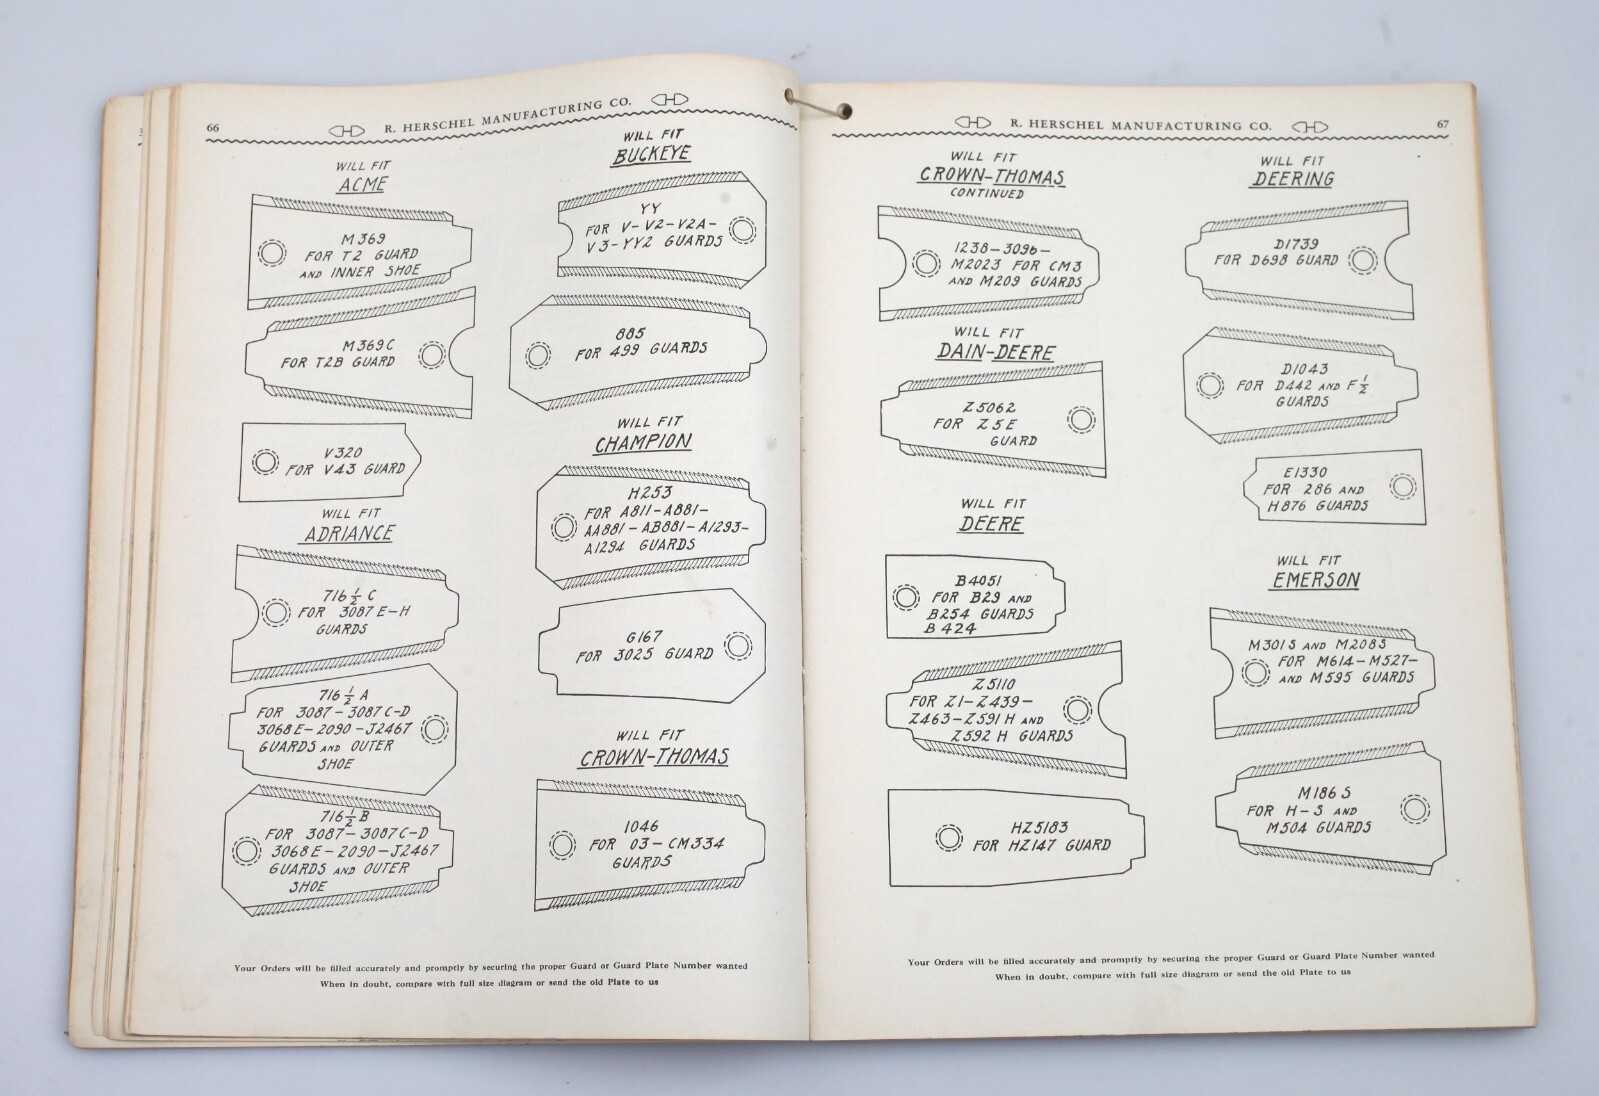 66
R. HERSCHEL MANUFACTURING CO.
WILL FIT
ACME
M369
FOR T2 GUARD
AND INNER SHOE
M369C
FOR T2B GUARD
V320
FOR V43 GUARD
WILL FIT
ADRIANCE
716 1/2 C
FOR 3087 E-H
GUARDS
716 1/2 A
FOR 3087-3087C-D
3068E-2090-J2467
GUARDS AND OUTER
SHOE
716 1/2 B
FOR 3087-3087C-D
3068E-2090-J2467
GUARDS AND OUTER
SHOE
WILL FIT
BUCKEYE
YY
FOR V-V2-V2A-
V3-YY2 GUARDS
885
FOR 499 GUARDS
WILL FIT
CHAMPION
H253
FOR A811-A881-
AA881-AB881-A1293-
A1294 GUARDS
G167
FOR 3025 GUARD
WILL FIT
CROWN-THOMAS
1046
FOR 03-CM334
GUARDS
Your Orders will be filled accurately and promptly by securing the proper Guard or Guard Plate Number wanted
When in doubt, compare with full size diagram or send the old Plate to us
R. HERSCHEL MANUFACTURING CO.
67
WILL FIT
CROWN-THOMAS
CONTINUED
1238-309b-
M2023 FOR CM3
AND M209 GUARDS
WILL FIT
DAIN-DEERE
Z5062
FOR Z5E
GUARD
WILL FIT
DEERE
B4051
FOR B29 AND
B254 GUARDS
B424
Z5110
FOR Z1-Z439-
Z463-Z591H AND
Z592H GUARDS
HZ5183
FOR HZ147 GUARD
WILL FIT
DEERING
D1739
FOR D698 GUARD
D1043
FOR D442 AND F 1/2
GUARDS
E1330
FOR 286 AND
H876 GUARDS
WILL FIT
EMERSON
M301S AND M208S
FOR M614-M527-
AND M595 GUARDS
M186S
FOR H-S AND
M504 GUARDS
Your Orders will be filled accurately and promptly by securing the proper Guard or Guard Plate Number wanted
When in doubt, compare with full size diagram or send the old Plate to us